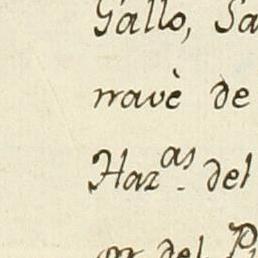 Gallo, Sa
rravè de
Haz.as del
del P